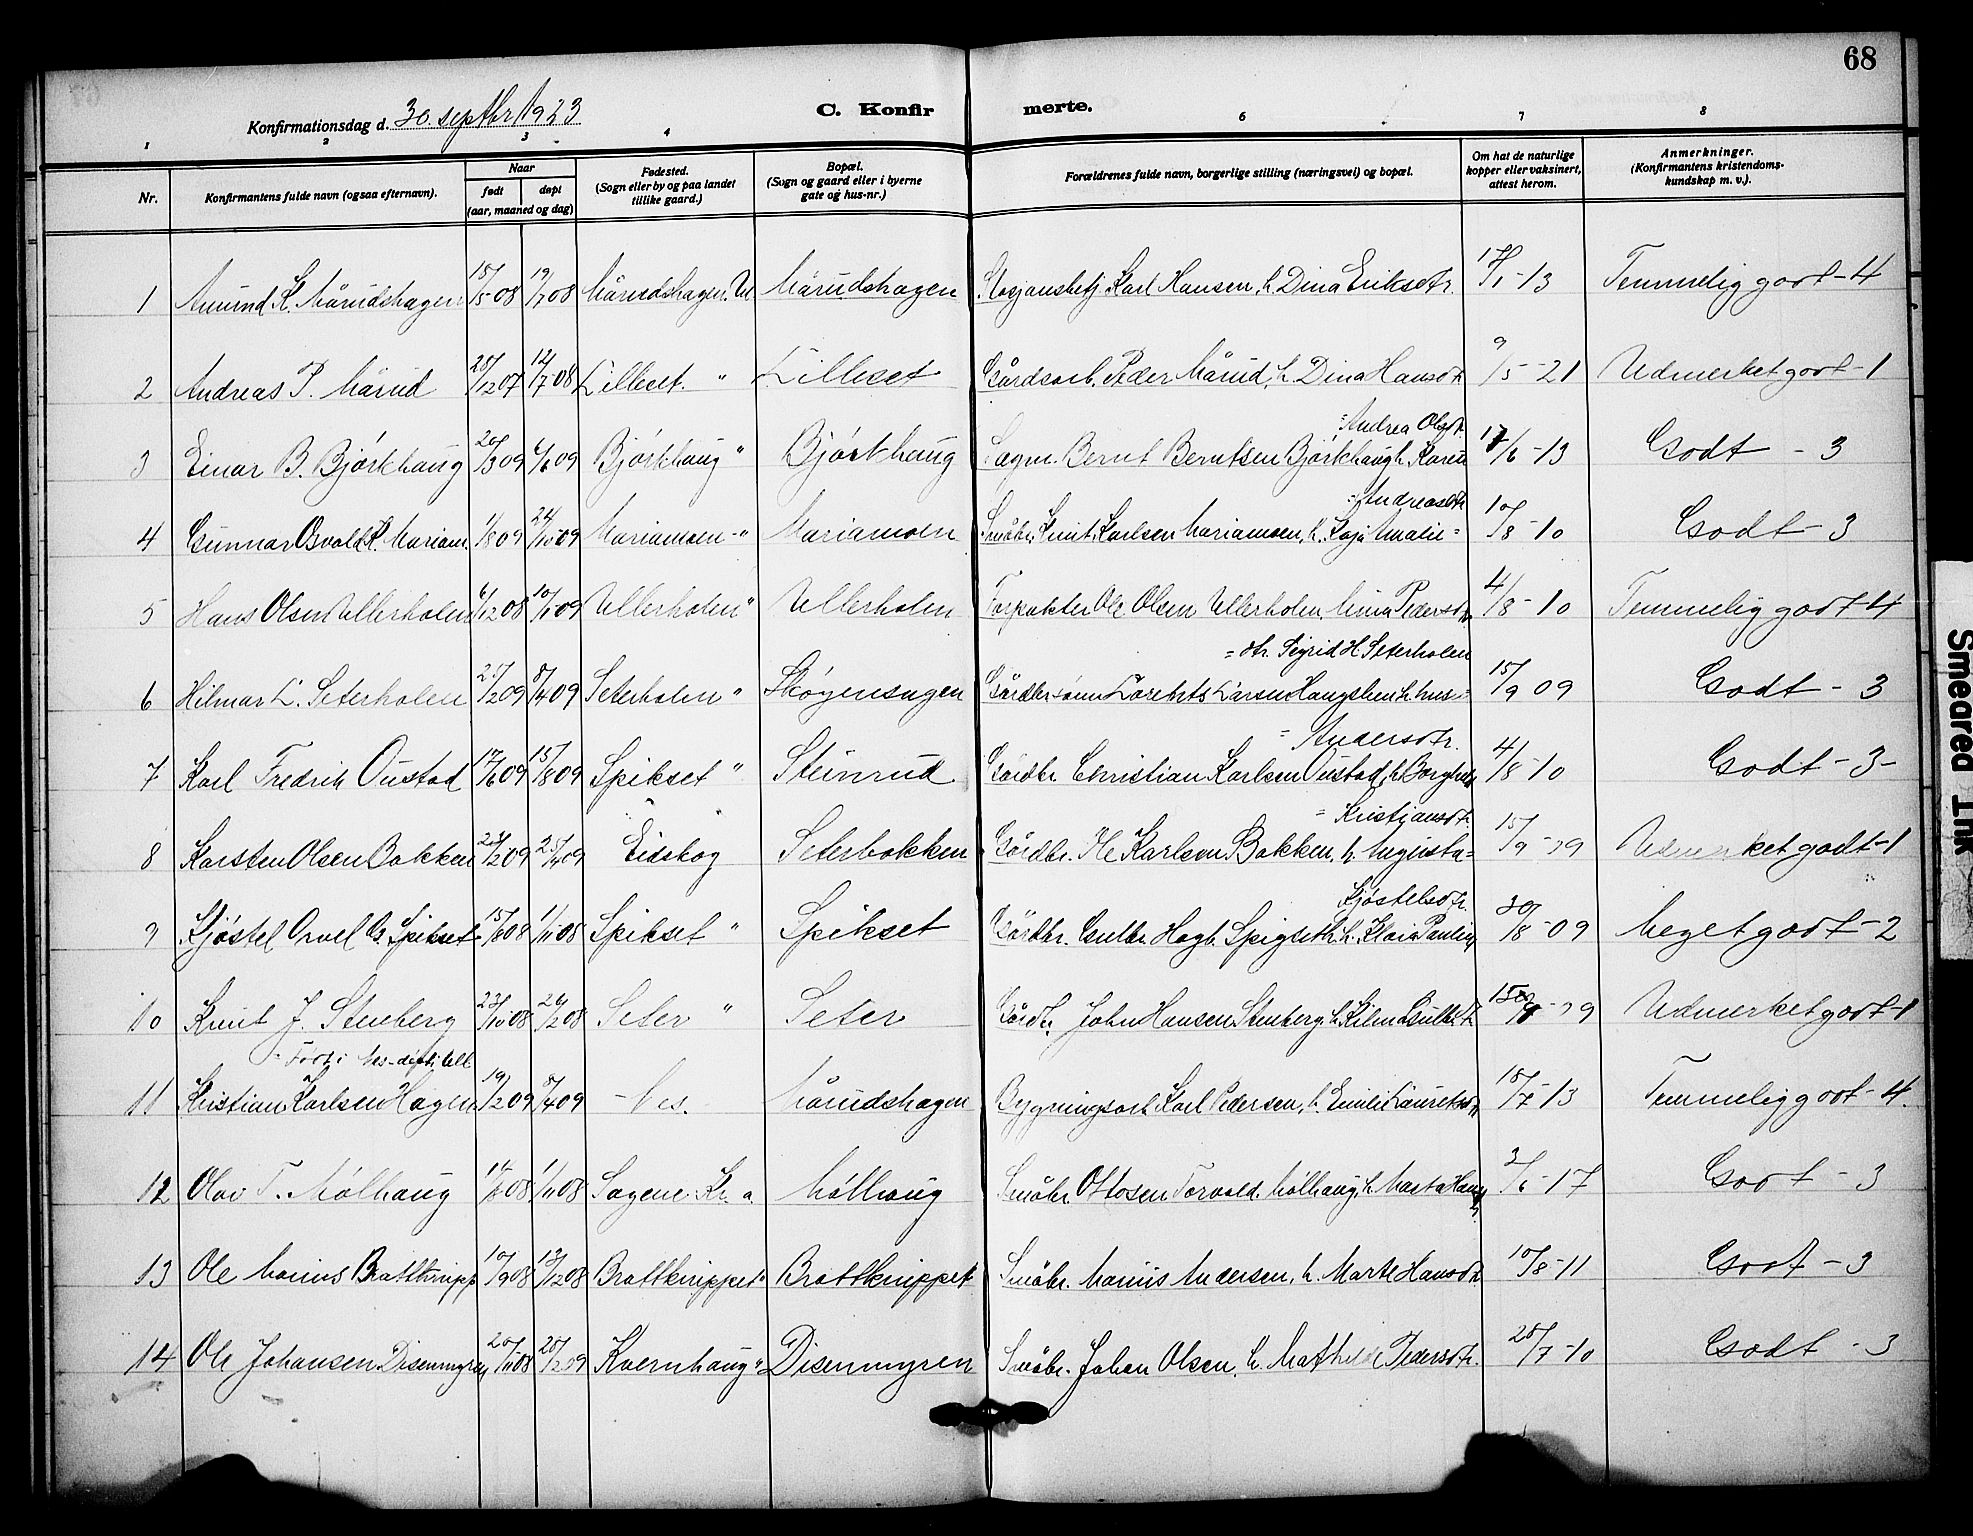 68
Konfirmationsdag d. 30. septbr 1923
C. Konfirmerte.
1 2 3 4 6 7 8
Nr.
Konfirmantens fulde navn (ogsaa efternavn).
Naar
født
døpt
(aar, maaned og dag)
Fødested.
(Sogn eller by og paa landet
tillike gaard.)
Bopæl.
(Sogn og gaard eller i byerne
gate og hus-nr.)
Forældrenes fulde navn, borgerlige stilling (næringsvei) og bopæl.
Om hat de naturlige
kopper eller vaksinert,
attest herom.
Anmerkninger.
(Konfirmantens kristendoms-
kundskap m. v.).
1 Amund K. Mårudshagen 15/5-08 19/7 08 Mårudshagen. Ul. Mårudshagen Karl Hansen, h. Dina Eriksdtr. 1-13 Temmelig godt-4
2 Andreas P. Mårud 28/12 07 12/7-08 Lilleset. " Lilleset Gårdsarb. Peder Mårud, h. Dina Hansdtr 9/5-21 Udmerket godt-1
= Andrea Olsdtr.
3 Einar B. Bjørkhaug 20/3 09 6/6 09 Bjørkhaug " Bjørkhaug Bernt Berntsen Bjørkhaug h. Karen 17/6-13 Godt - 3
= Andreasdtr
4 Gunnar Osvald K. Mariam. 1/8 09 24/10 09 Mariamoen " Mariamoen Småbr. Knut Karlsen Mariamoen, h. Kaja Amalie = 10/8-10 Godt - 3
5 Hans Olsen Ullerholen 6/12 08 Ullerholen " Ullerholen Forpakter Ole Olsen Ullerholen, Mina Pedersdtr 4/8-10 Temmelig godt-4
= dtr. Sigrid H. Seterholen
6 Hilmar L. Seterholen 2/2 09 8/4 09 Seterholen " Skøgensagen Gårdbr.sønn Larsen h. hus = 15/9 09 Godt - 3
= Andersdtr.
7 Karl Fredrik Oustad 17/6 09 15/8 09 Spikset " Steinrud Gårdbr. Christian Karlsen Oustad, h. Borghild 4/8-10 Godt - 3 -
= Kristjansdtr.
8 Karsten Olsen Bakken 23/2 09 25/4 09 Eidskog Seterbakken Gårdbr. Ole Karlsen Bakken, h. Augusta = 15/9-09 Udmerket godt-1
Kjøstelsdtr.
9 Kjøstel Orvel G. Spikset 15/8 08 1/11 08 Spikset " Spikset Gårdbr. Gulbr. Hagb. Spigseth h. Klara Pauline 30/8-09 Meget godt - 2
10 Knut J. Stenberg 23/10 08 26/12 08 Seter " Seter Gårdbr. John Hansen Stenberg, h. -09 Udmerket godt-1
= Født i Nes - døpt i Ull.
11 Kristian Karlsen Hagen 19/2 09 8/4 09 Nes. Mårudshagen Bygningsarb. Karl Pedersen, h. Emilie Lauritsdtr 18/7-13 Temmelig godt - 4.
12 Olav T. Mølhaug 08 1/11 08 Sagene Kr.a. Mølhaug Småbr. Ottosen Torvald. Mølhaug, h. Marta Hansdtr 2/6-17 Godt - 3
13 Ole Marius Brattknipp 10/9 08 13/12 08 Brattknippet " Brattknippet Småbr. Marius Andersen, h. Marte Hansdtr 10/8-11 Godt - 3
14 Ole Johansen Disenmyren 20/11 08 20/2 09 Kvernhaug " Disenmyren Småbr. Johan Olsen, h. Mathilde Pedersdtr. 28/7-10 Godt - 3
Smeared Ink